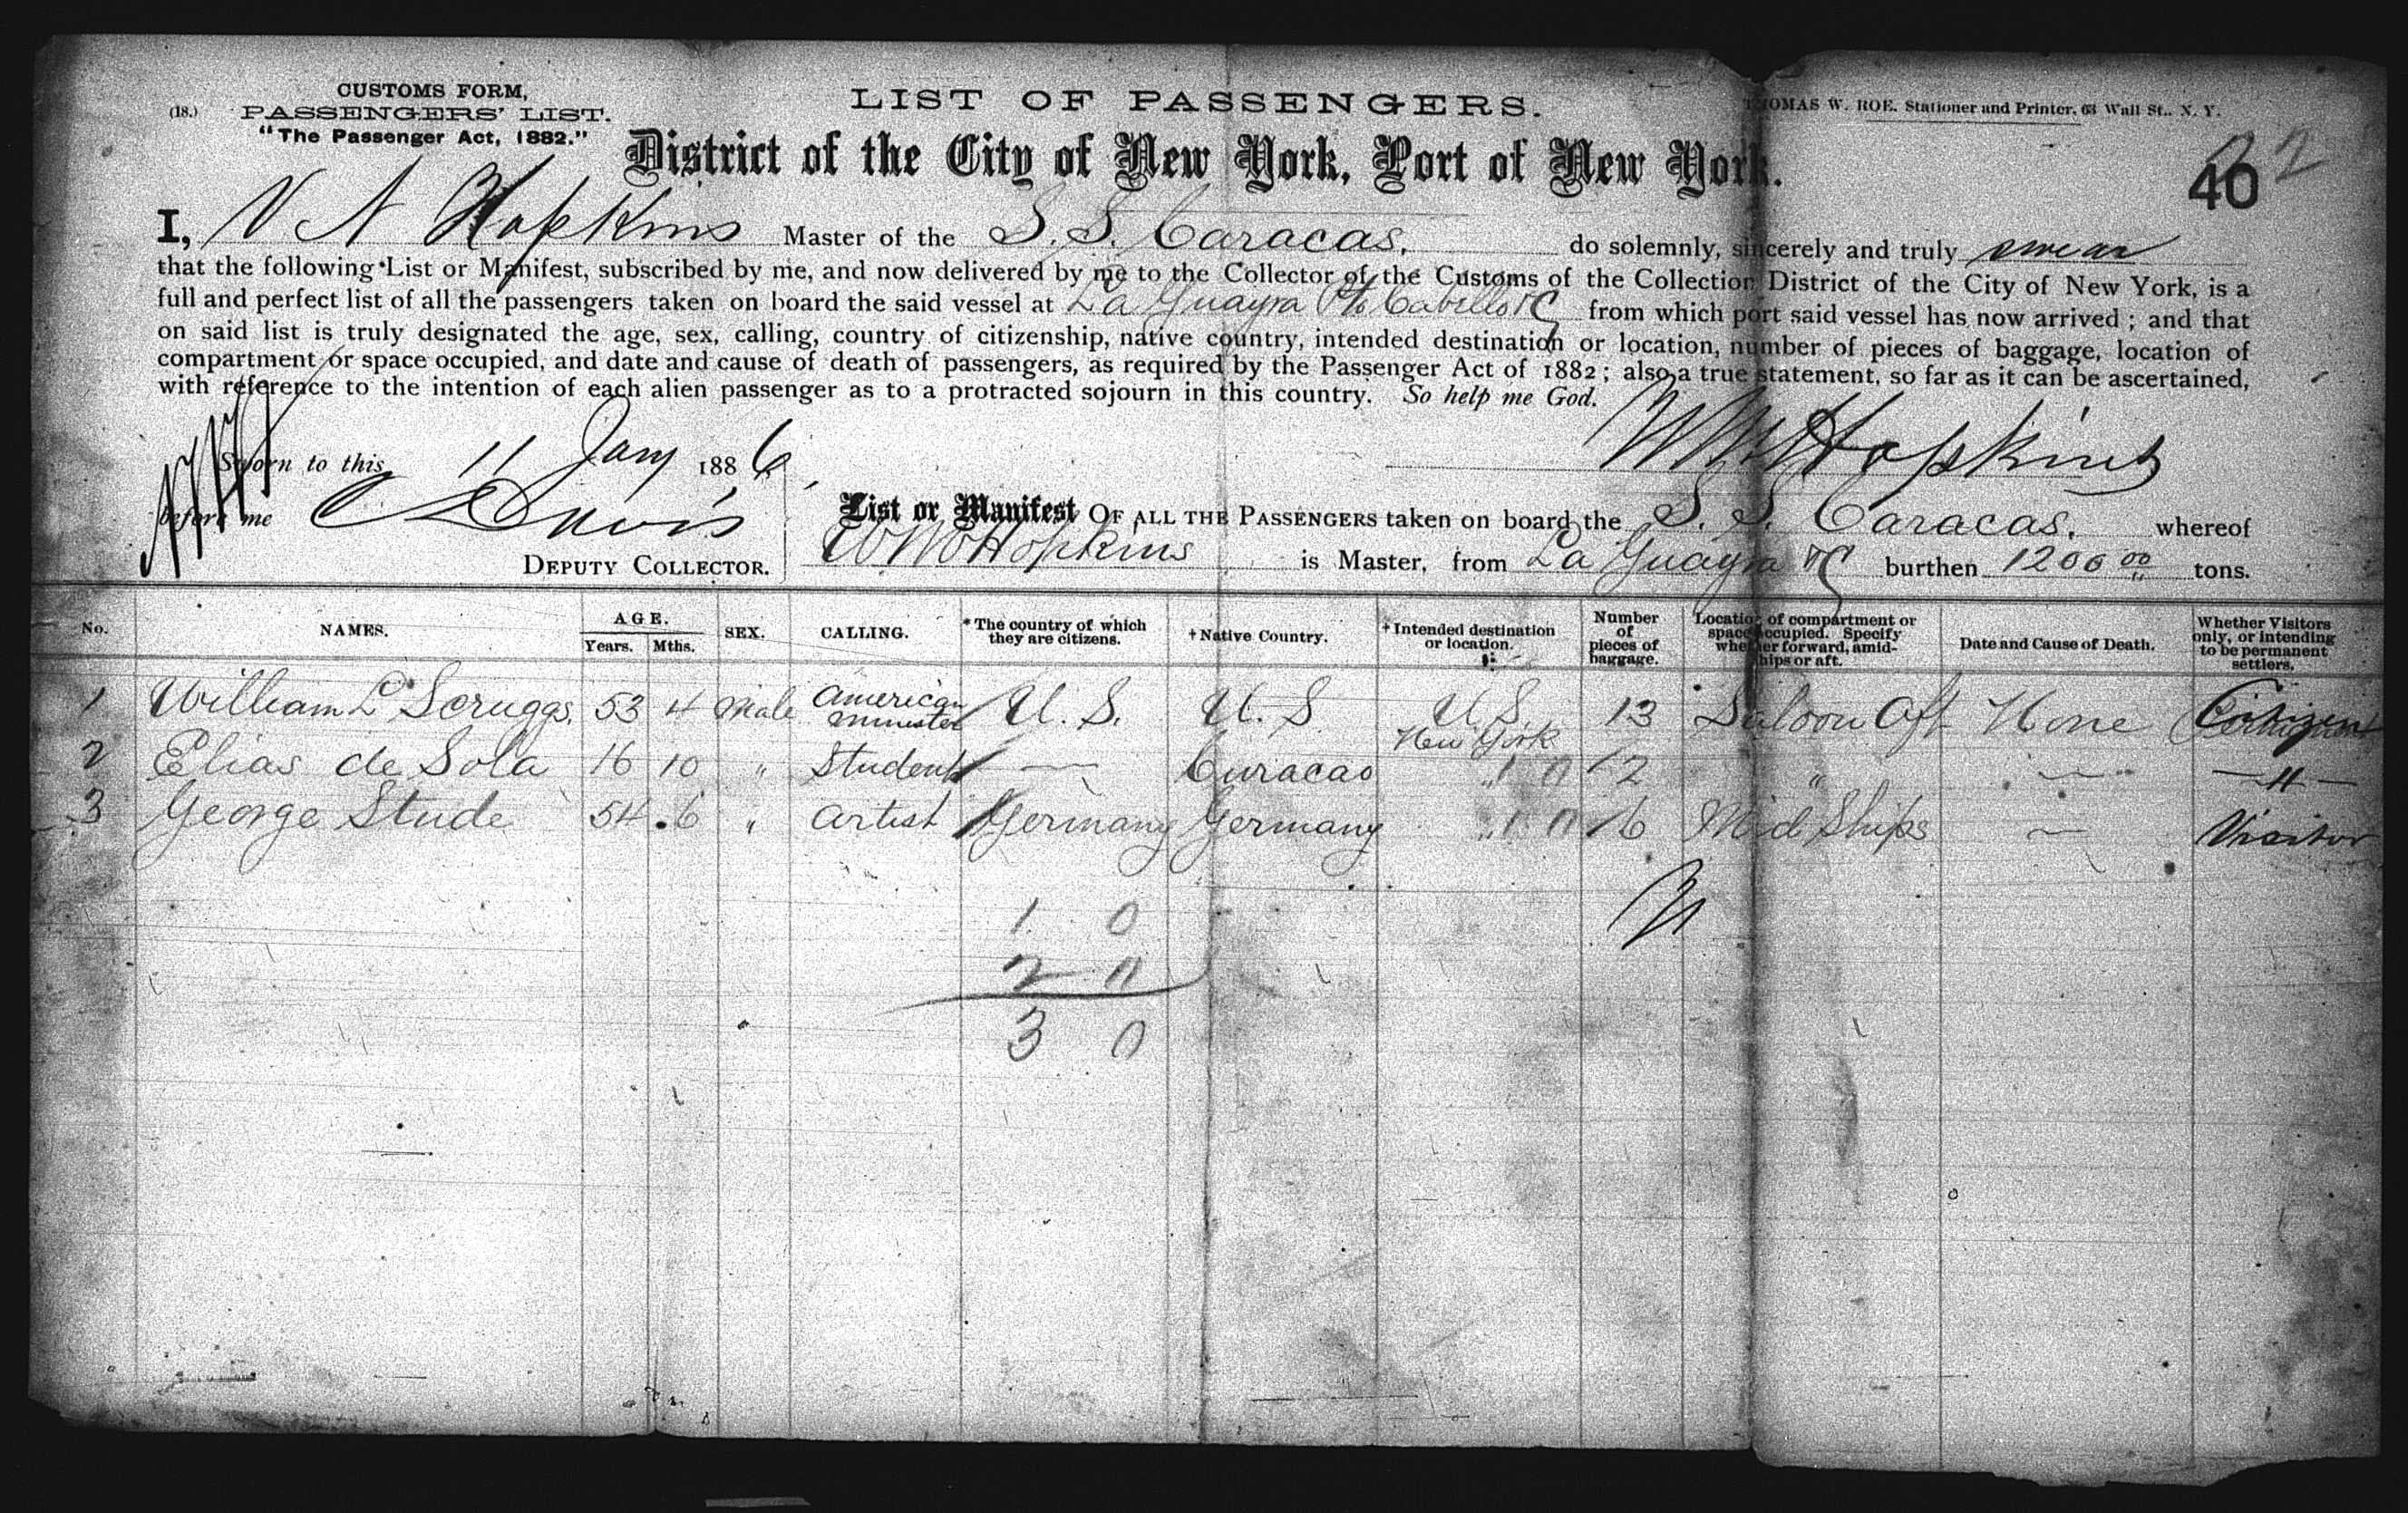 CUSTOMS FORM,
(18.) PASSENGERS' LIST.
"The Passenger Act, 1882."
LIST OF PASSENGERS.
THOMAS W. ROE. Stationer and Printer, 63 Wall St., N. Y.
District of the City of New York, Port of New York.
40
I, Hopkins Master of the S. S. Caracas, do solemnly, sincerely and truly swear
that the following List or Manifest, subscribed by me, and now delivered by me to the Collector of the Customs of the Collection District of the City of New York, is a
full and perfect list of all the passengers taken on board the said vessel at La Guayra Pto Cabello &c from which port said vessel has now arrived; and that
on said list is truly designated the age, sex, calling, country of citizenship, native country, intended destination or location, number of pieces of baggage, location of
compartment or space occupied, and date and cause of death of passengers, as required by the Passenger Act of 1882; also a true statement, so far as it can be ascertained,
with reference to the intention of each alien passenger as to a protracted sojourn in this country. So help me God.
Hopkins
Sworn to this 11 Jany 1886
before me Davis
DEPUTY COLLECTOR.
List or Manifest OF ALL THE PASSENGERS taken on board the S. S. Caracas, whereof
Hopkins is Master, from La Guayra &c burthen 1200 00 tons.
No. NAMES. AGE. Years. Mths. SEX. CALLING. *The country of which they are citizens. †Native Country. †Intended destination or location. Number of pieces of baggage. Location of compartment or space occupied. Specify whether forward, amidships or aft. Date and Cause of Death. Whether Visitors only, or intending to be permanent settlers.
1 William L Scruggs. 53 4 Male American Minister U. S. U. S U. S. 13 Saloon Aft None Citizen
2 Elias de Sola 16 10 " Student — Curacao New York 2 " — — " —
3 George Stude 54 6 " Artist Germany Germany " 6 Mid Ships — Visitor
1 0
2 0
3 0